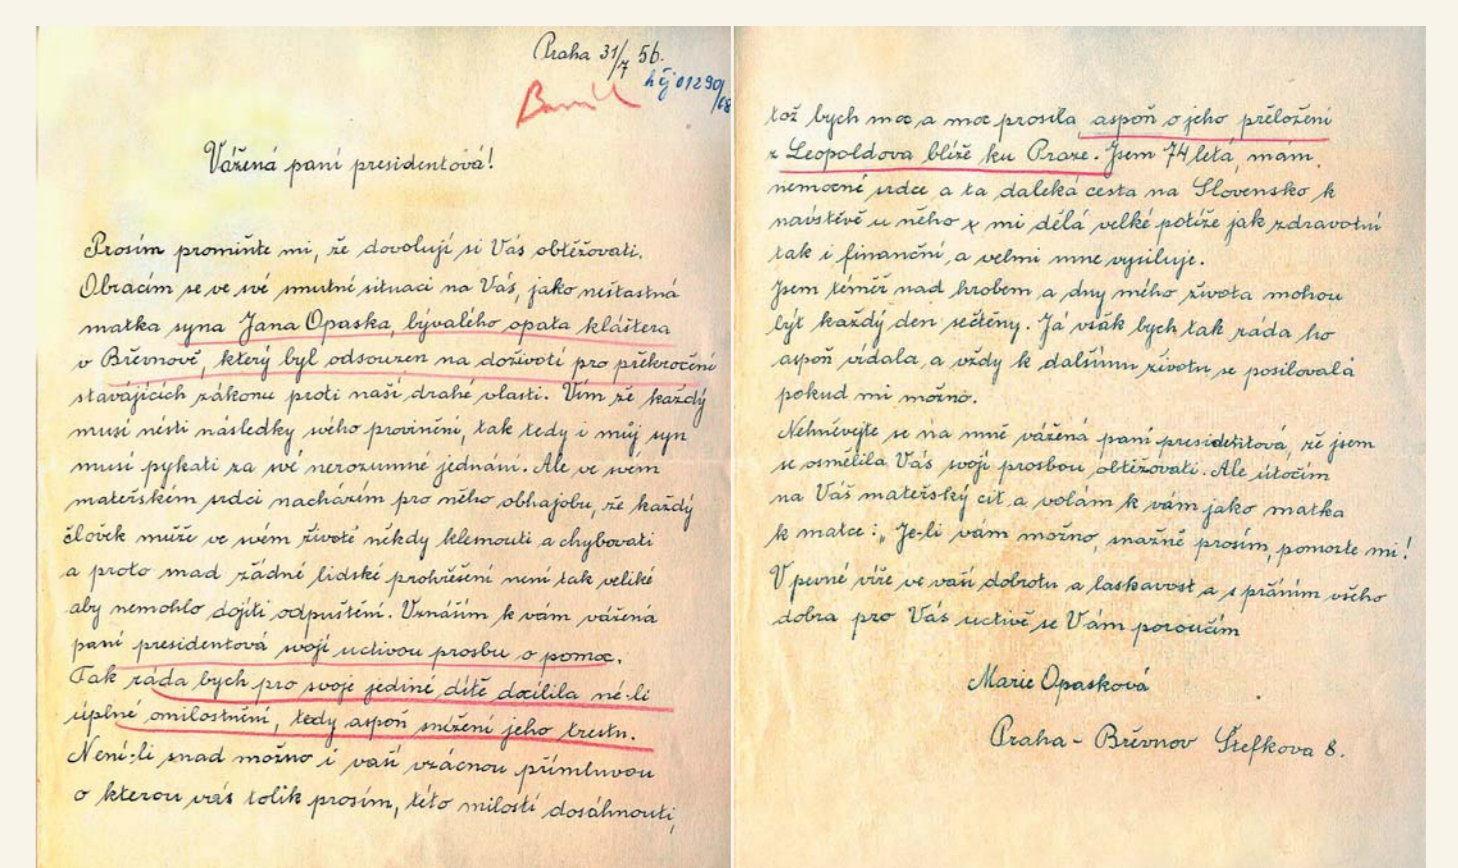 Praha 31/7 56.
čj 01290/68
Vážená paní presidentová!
Prosím promiňte mi, že dovolují si Vás obtěžovati.
Obracím se ve své smutné situaci na Vás, jako nešťastná
matka syna Jana Opaska, bývalého opata kláštera
v Břevnově, který byl odsouzen na doživotí pro překročení
stavájících zákonu proti naší drahé vlasti. Vím že každý
musí nésti následky svého provinění, tak tedy i můj syn
musí pykati za své nerozumné jednání. Ale ve svém
mateřském srdci nacházím pro něho obhajobu, že každý
človék může ve svém životé někdy klesnouti a chybovati
a proto snad žádné lidské prohřešení není tak veliké
aby nemohlo dojíti odpuštění. Vznáším k vám vážená
paní presidentová svojí uctivou prosbu o pomoc.
Tak ráda bych pro svoje jediné dítě docílila né-li
úplné omilostnění, tedy aspoň snížení jeho trestu.
Není-li snad možno i vaší vzácnou přímluvou
o kterou vás tolik prosím, této milosti dosáhnouti,
tož bych moc a moc prosila aspoň o jeho přeložení
z Leopoldova blíže ku Praze. Jsem 74 letá, mám
nemocné srdce a ta daleká cesta na Slovensko k
navstěvě u něho x mi dělá velké potíže jak zdravotní
tak i finanční, a velmi mne vysiluje.
Jsem téměř nad hrobem a dny mého života mohou
být každý den sečtény. Já však bych tak ráda ho
aspoň vídala, a vždy k dalšímu životu se posilovalá
pokud mi možno.
Nehněvejte se na mně vážená paní presidentová, že jsem
se osmělila Vás svojí prosbou obtěžovati. Ale útočím
na Váš mateřský cit a volám k vám jako matka
k matce: „Je-li vám možno, snažně prosím, pomozte mi!
V pevné víře ve vaší dobrotu a laskavost a s přáním všeho
dobra pro Vás uctivě se Vám poroučím
Marie Opasková
Praha - Břevnov Štefkova 8.